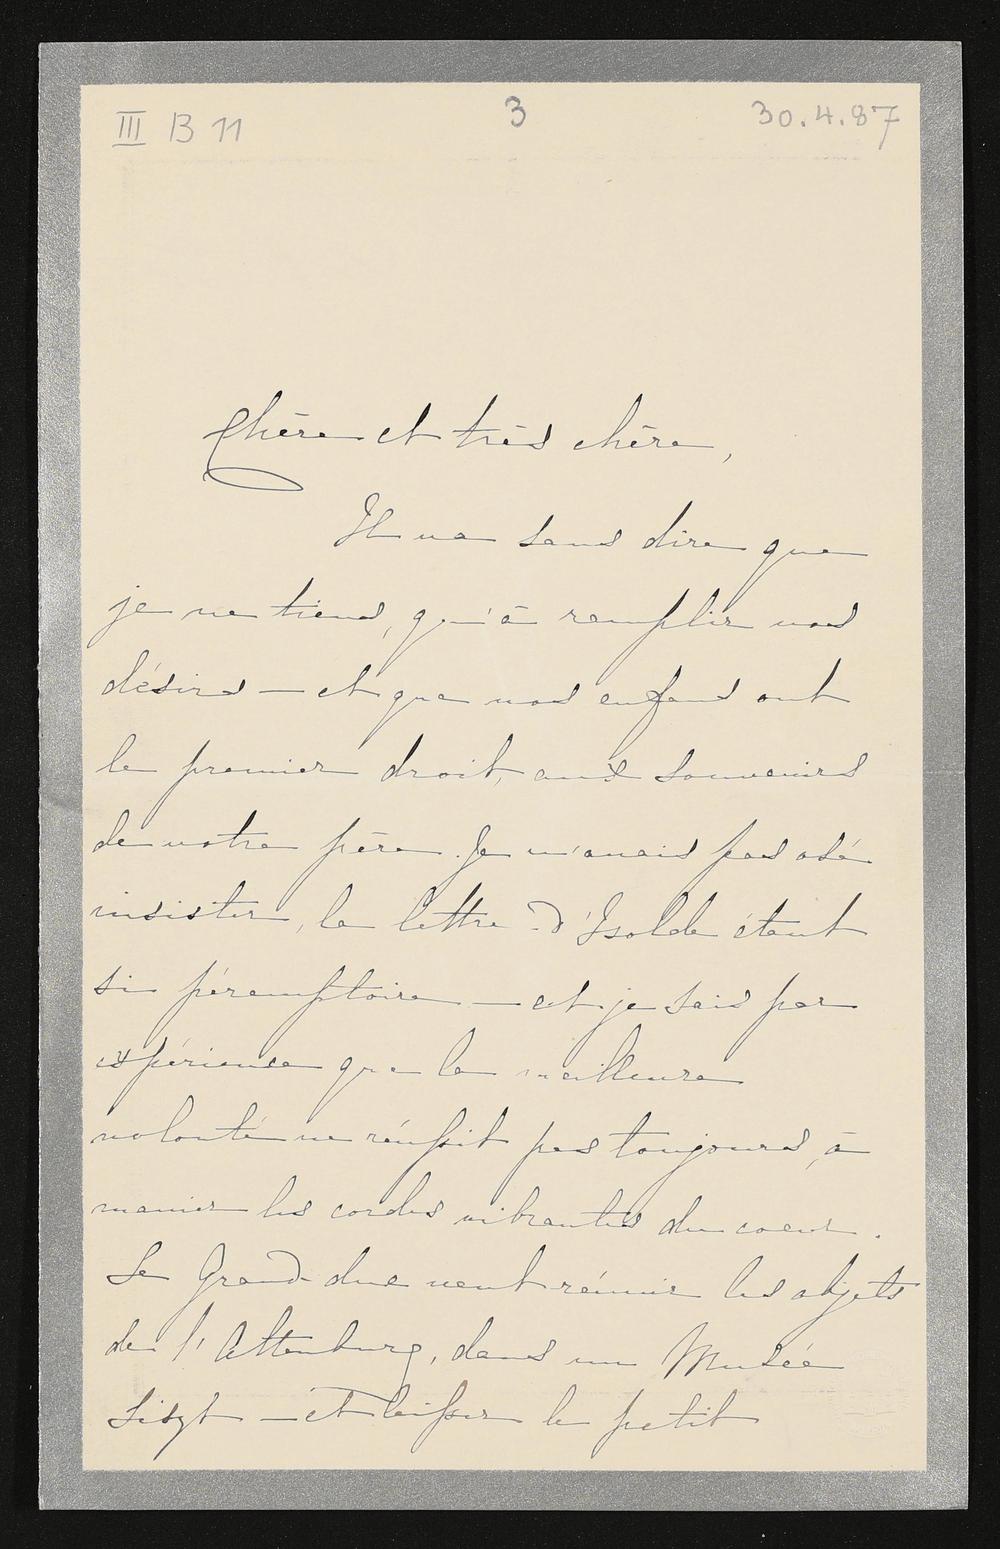 III B 11 3 30.4.87
Chère et très chère,
Il va sans dire que
je ne tiens, qu'à remplir vos
désirs — et que vos enfans ont
le premier droit, aux souvenirs
de votre père. Je n'avais pas osé
insister, la lettre d'Isolde étant
si péremptoire — et je sais par
expérience que la meilleure
volonté ne réussit pas toujours, à
manier les cordes vibrantes du coeur.
Le Grand-duc veut réunir les objets
de l'Altenburg, dans un Musée
Liszt — et laisser le petit